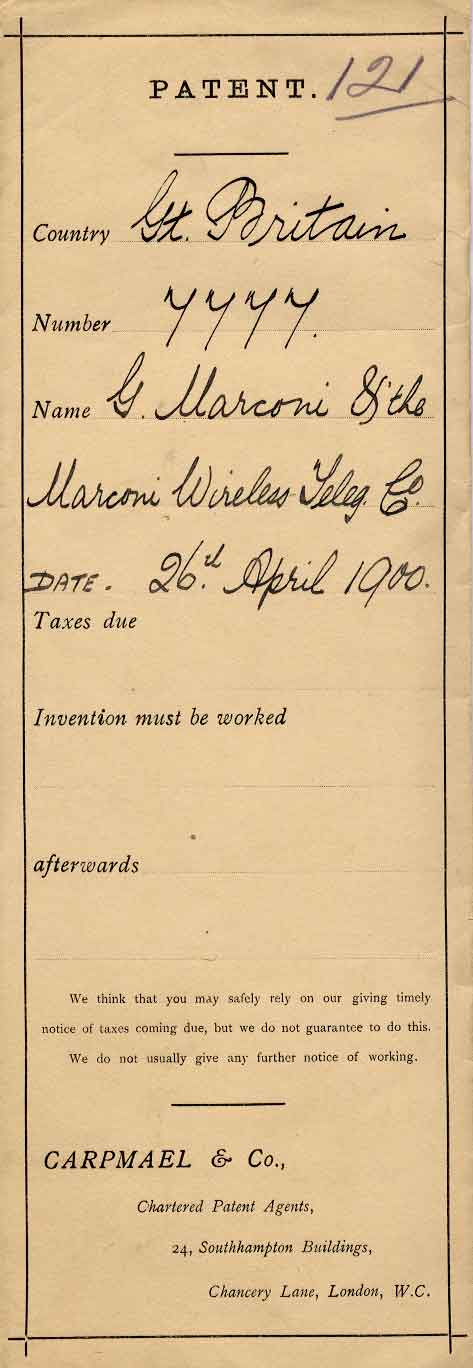 PATENT. 121
Country Gt. Britain
Number 7777.
Name G. Marconi & the
Marconi Wireless Teleg. Co.
DATE. 26th April 1900.
Taxes due
Invention must be worked
afterwards
We think that you may safely rely on our giving timely
notice of taxes coming due, but we do not guarantee to do this.
We do not usually give any further notice of working.
CARPMAEL & Co.,
Chartered Patent Agents,
24, Southhampton Buildings,
Chancery Lane, London, W.C.